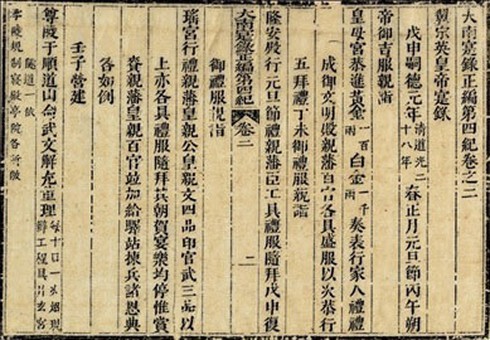 大南寔錄正編第四紀卷之二
翼宗英皇帝寔紀
戊申嗣德元年清道光二十八年春正月元旦節丙午朔
帝御吉服親詣
皇母宮恭進黃金一百兩白金一千兩奏表行家人禮禮
成御文明殿親藩百官各具盛服以次恭行
五拜禮丁未御禮服親詣
隆安殿行元旦節禮親藩臣工具禮服隨拜戊申復
大南寔錄正編第四紀 卷二 二
御禮服親詣
瑞宮行禮親藩皇親公皇親文四品印官武三品以
上亦各具禮服隨拜其朝賀宴樂均停惟賞
賚親藩皇親百官並加給驛站揀兵諸恩典
各如例
壬子營建
尊陵于順道山命武文解充董理每十日一次遞現辦工程具片玄宮
隧道一依
孝陵規制寢殿亭院各